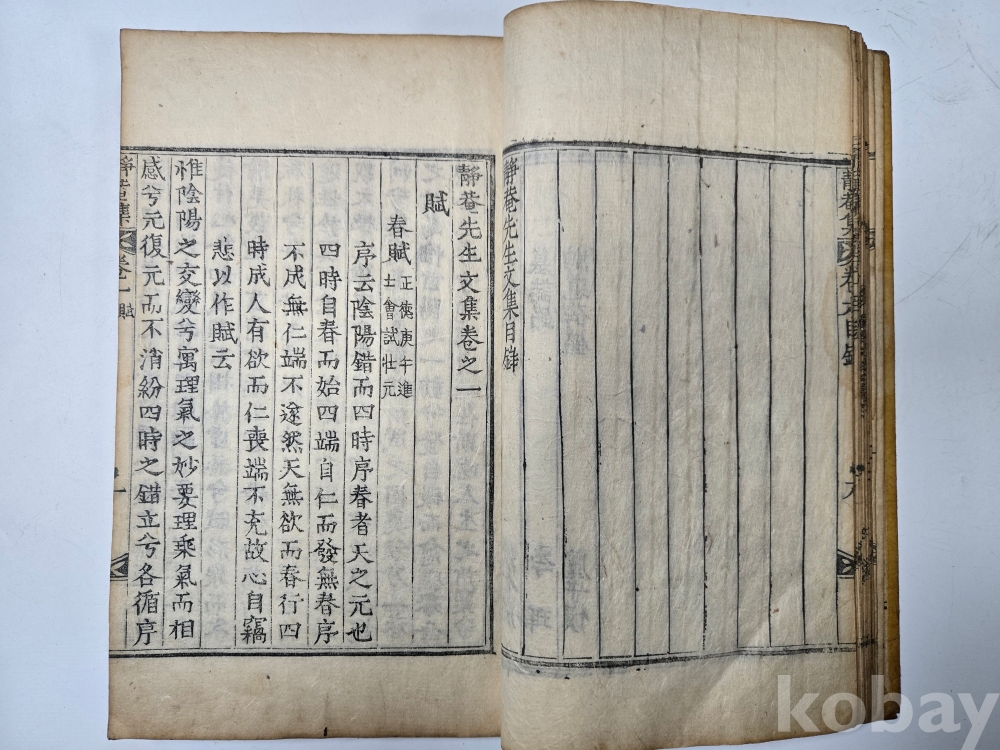 靜菴先生文集目錄
靜菴先生文集卷之一
賦
春賦
正德庚午進
士會試壯元
序云陰陽錯而四時序春者天之元也
四時自春而始四端自仁而發無春序
不成無仁端不遂然天無欲而春行四
時成人有欲而仁喪端不充故心自竊
悲以作賦云
惟陰陽之交變兮寓理氣之妙要理乘氣而相
感兮元復元而不消紛四時之錯立兮各循序
kobay